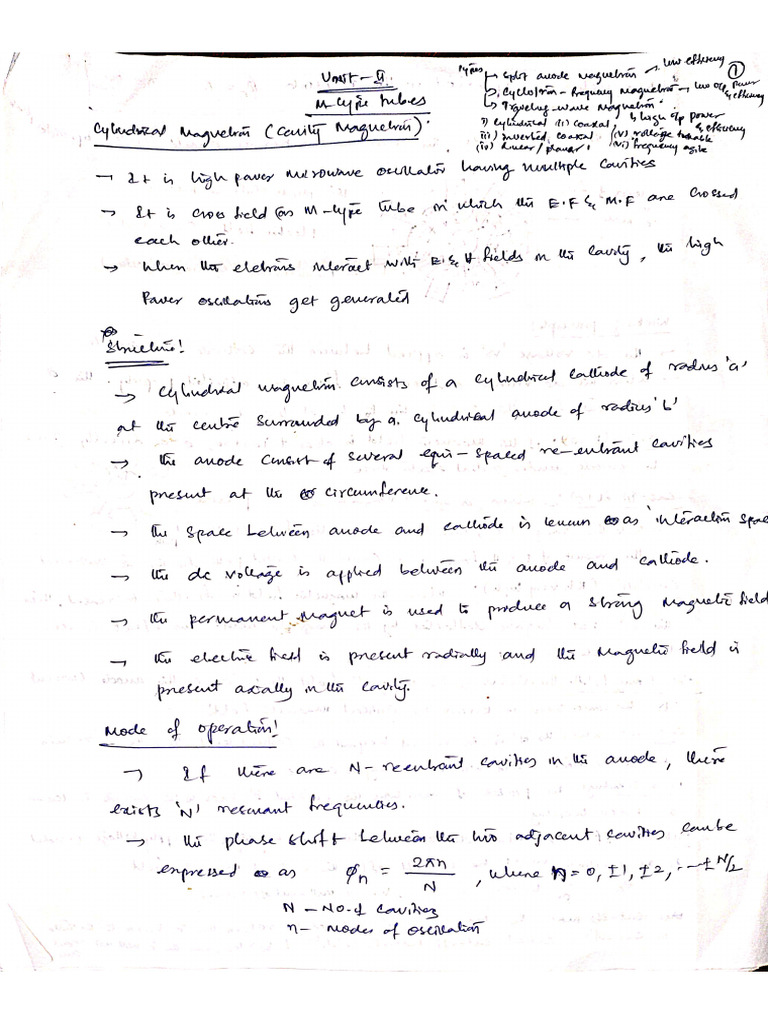 Unit-II
M-type tubes
Types
→ Split anode magnetron → low efficiency
→ Cyclotron-frequency magnetron → low o/p power & efficiency
→ Traveling-wave magnetron
→ high o/p power & efficiency
i) Cylindrical (ii) coaxial
iii) inverted coaxial (iv) voltage tunable
(iv) linear / planar (vi) frequency agile
①
Cylindrical Magnetron (Cavity Magnetron):
→ It is high power microwave oscillator having multiple cavities
→ It is cross field (or) M-type tube in which the E.F & M.F are crossed
each other.
→ When the eletrons interact with E & H fields in the cavity, the high
Power oscillations get generated
Structure!
→ Cylindrical magnetron consists of a cylindrical cathode of radius 'a'
at the centre surrounded by a cylindrical anode of radius 'b'
→ the anode consist of several equi-spaced re-entrant cavities
present at the circumference.
→ the space between anode and cathode is known as 'interaction space
→ the dc voltage is applied between the anode and cathode.
→ the permanent magnet is used to produce a strong magnetic field
→ the electric field is present radially and the Magnetic field is
present axially in the cavity.
Mode of operation!
→ If there are N-reentrant cavities in the anode, there
exists 'N' resonant frequencies.
→ the phase shift between the two adjacent cavities can be
expressed as ϕn = 2πn/N , where n=0, ±1, ±2, ---± N/2
N - No. of cavities
n- modes of oscillation